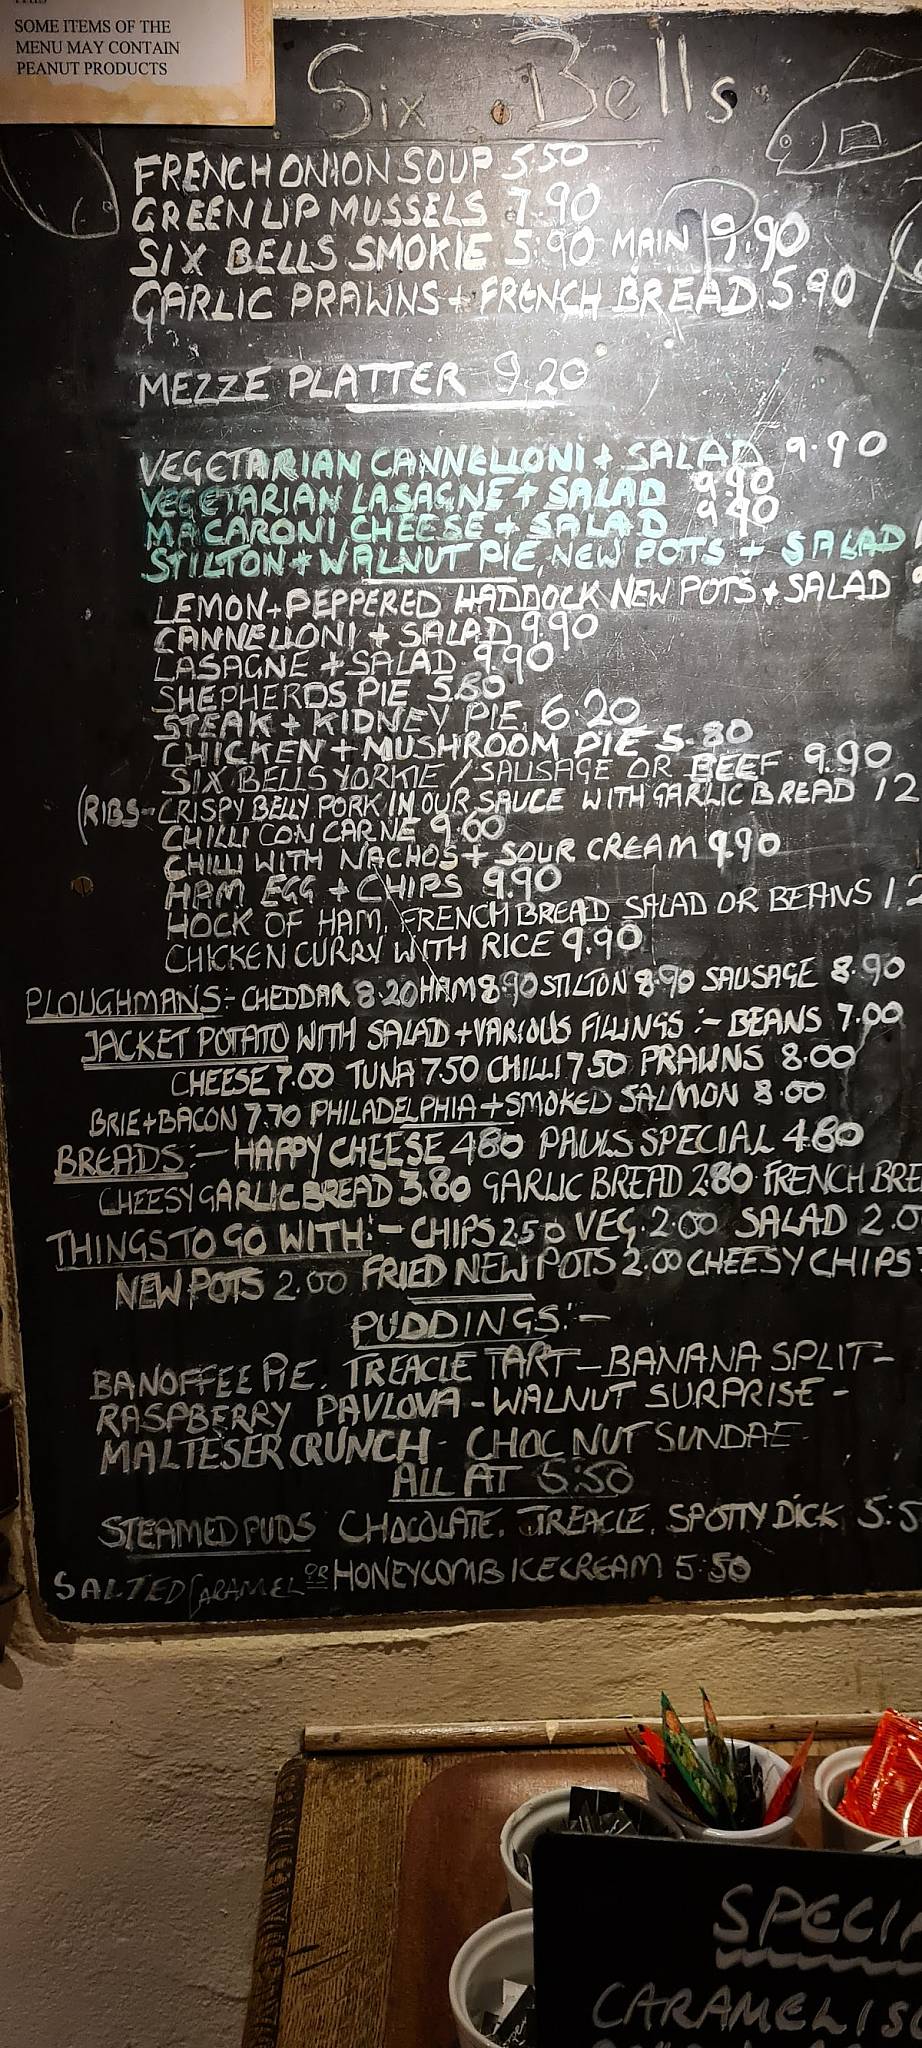 SOME ITEMS OF THE
MENU MAY CONTAIN
PEANUT PRODUCTS
Six Bells
FRENCH ONION SOUP 5.50
GREEN LIP MUSSELS 7.90
SIX BELLS SMOKIE 5:90 MAIN 9.90
GARLIC PRAWNS + FRENCH BREAD 5.90
MEZZE PLATTER 9.20
VEGETARIAN CANNELLONI + SALAD 9.90
VEGETARIAN LASAGNE + SALAD 9.90
MACARONI CHEESE + SALAD 9.90
STILTON + WALNUT PIE, NEW POTS + SALAD
LEMON + PEPPERED HADDOCK NEW POTS + SALAD
CANNELLONI + SALAD 9.90
LASAGNE + SALAD 9.90
SHEPHERDS PIE 5.80
STEAK + KIDNEY PIE. 6.20
CHICKEN + MUSHROOM PIE 5.80
SIX BELLS YORKIE / SAUSAGE OR BEEF 9.90
(RIBS - CRISPY BELLY PORK IN OUR SAUCE WITH GARLIC BREAD 12
CHILLI CON CARNE 9.60
CHILLI WITH NACHOS + SOUR CREAM 9.90
HAM EGG + CHIPS 9.90
HOCK OF HAM, FRENCH BREAD SALAD OR BEANS 12
CHICKEN CURRY WITH RICE 9.90
PLOUGHMANS:- CHEDDAR 8.20 HAM 8.90 STILTON 8.90 SAUSAGE 8.90
JACKET POTATO WITH SALAD + VARIOUS FILLINGS :- BEANS 7.00
CHEESE 7.00 TUNA 7.50 CHILLI 7.50 PRAWNS 8.00
BRIE + BACON 7.70 PHILADELPHIA + SMOKED SALMON 8.00
BREADS:- HAPPY CHEESE 4.80 PAULS SPECIAL 4.80
CHEESY GARLIC BREAD 3.80 GARLIC BREAD 2.80 FRENCH BRE
THINGS TO GO WITH:- CHIPS 2.50 VEG. 2.00 SALAD 2.0
NEW POTS 2.00 FRIED NEW POTS 2.00 CHEESY CHIPS
PUDDINGS:-
BANOFFEE PIE. TREACLE TART - BANANA SPLIT -
RASPBERRY PAVLOVA - WALNUT SURPRISE -
MALTESER CRUNCH - CHOC NUT SUNDAE
ALL AT 5:50
STEAMED PUDS CHOCOLATE. TREACLE. SPOTTY DICK 5:5
SALTED CARAMEL OR HONEYCOMB ICE CREAM 5:50
SPECIA
CARAMELISE